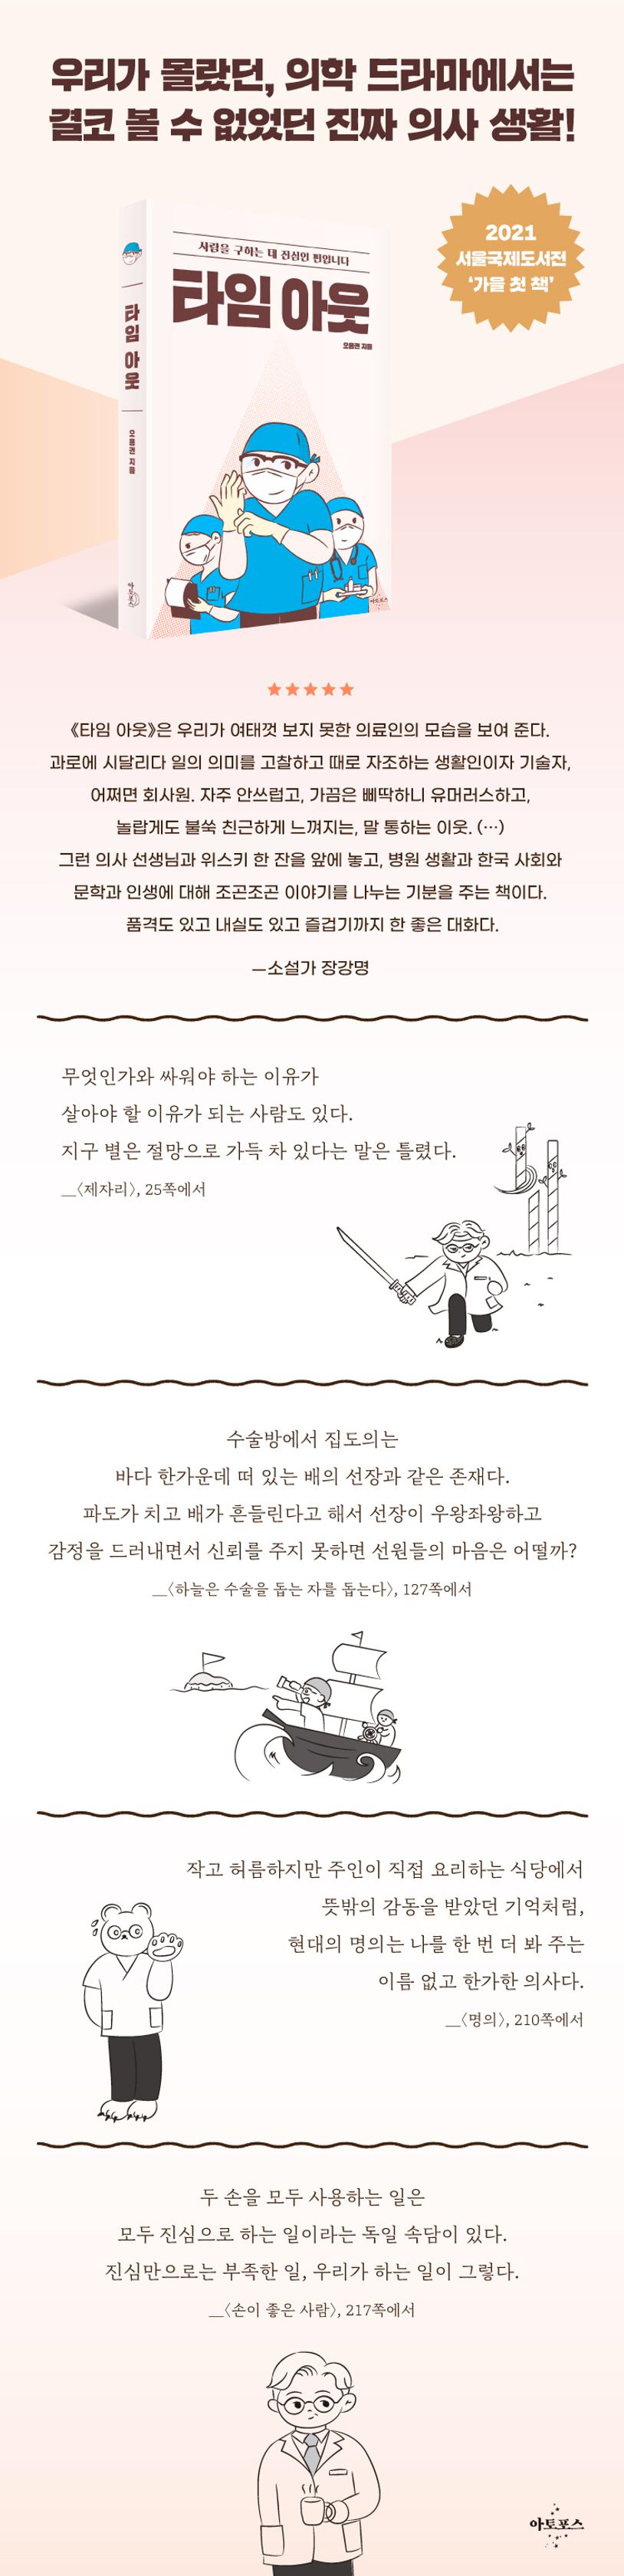 우리가 몰랐던, 의학 드라마에서는
결코 볼 수 없었던 진짜 의사 생활!
2021
서울국제도서전
‘가을 첫 책’
사람을 구하는 데 진심인 편입니다
타임 아웃
오흥권 지음
타임 아웃
오흥권 지음
아토포스
아토포스
《타임 아웃》은 우리가 여태껏 보지 못한 의료인의 모습을 보여 준다.
과로에 시달리다 일의 의미를 고찰하고 때로 자조하는 생활인이자 기술자,
어쩌면 회사원. 자주 안쓰럽고, 가끔은 삐딱하니 유머러스하고,
놀랍게도 불쑥 친근하게 느껴지는, 말 통하는 이웃. (…)
그런 의사 선생님과 위스키 한 잔을 앞에 놓고, 병원 생활과 한국 사회와
문학과 인생에 대해 조곤조곤 이야기를 나누는 기분을 주는 책이다.
품격도 있고 내실도 있고 즐겁기까지 한 좋은 대화다.
—소설가 장강명
무엇인가와 싸워야 하는 이유가
살아야 할 이유가 되는 사람도 있다.
지구 별은 절망으로 가득 차 있다는 말은 틀렸다.
__〈제자리〉, 25쪽에서
수술방에서 집도의는
바다 한가운데 떠 있는 배의 선장과 같은 존재다.
파도가 치고 배가 흔들린다고 해서 선장이 우왕좌왕하고
감정을 드러내면서 신뢰를 주지 못하면 선원들의 마음은 어떨까?
__〈하늘은 수술을 돕는 자를 돕는다〉, 127쪽에서
작고 허름하지만 주인이 직접 요리하는 식당에서
뜻밖의 감동을 받았던 기억처럼,
현대의 명의는 나를 한 번 더 봐 주는
이름 없고 한가한 의사다.
__〈명의〉, 210쪽에서
두 손을 모두 사용하는 일은
모두 진심으로 하는 일이라는 독일 속담이 있다.
진심만으로는 부족한 일, 우리가 하는 일이 그렇다.
__〈손이 좋은 사람〉, 217쪽에서
아토포스